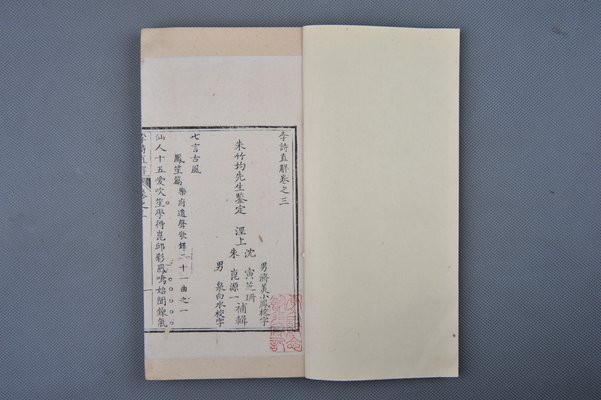 李詩直解卷之三
朱竹均先生鑒定
涇上
沈寅芝珊
朱崑源一
補輯
男濟美小鳳校字
男泉白水校字
七言古風
鳳笙篇 樂府遺聲歌鐸二十一曲之一
仙人十五愛吹笙學得崑邱彩鳳鳴始聞鍊氣